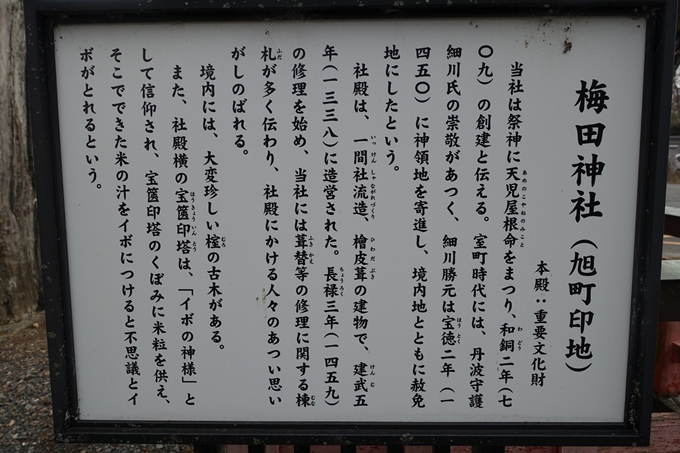 梅田神社(旭町印地)
本殿:重要文化財
当社は祭神に天児屋根命をまつり、和銅二年(七
〇九)の創建と伝える。室町時代には、丹波守護
細川氏の崇敬があつく、細川勝元は宝徳二年(一
四五〇)に神領地を寄進し、境内地とともに赦免
地にしたという。
社殿は、一間社流造、檜皮葺の建物で、建武五
年(一三三八)に造営された。長禄三年(一四五九)
の修理を始め、当社には葺替等の修理に関する棟
札が多く伝わり、社殿にかける人々のあつい思い
がしのばれる。
境内には、大変珍しい樘の古木がある。
また、社殿横の宝篋印塔は、「イボの神様」と
して信仰され、宝篋印塔のくぼみに米粒を供え、
そこでできた米の汁をイボにつけると不思議とイ
ボがとれるという。